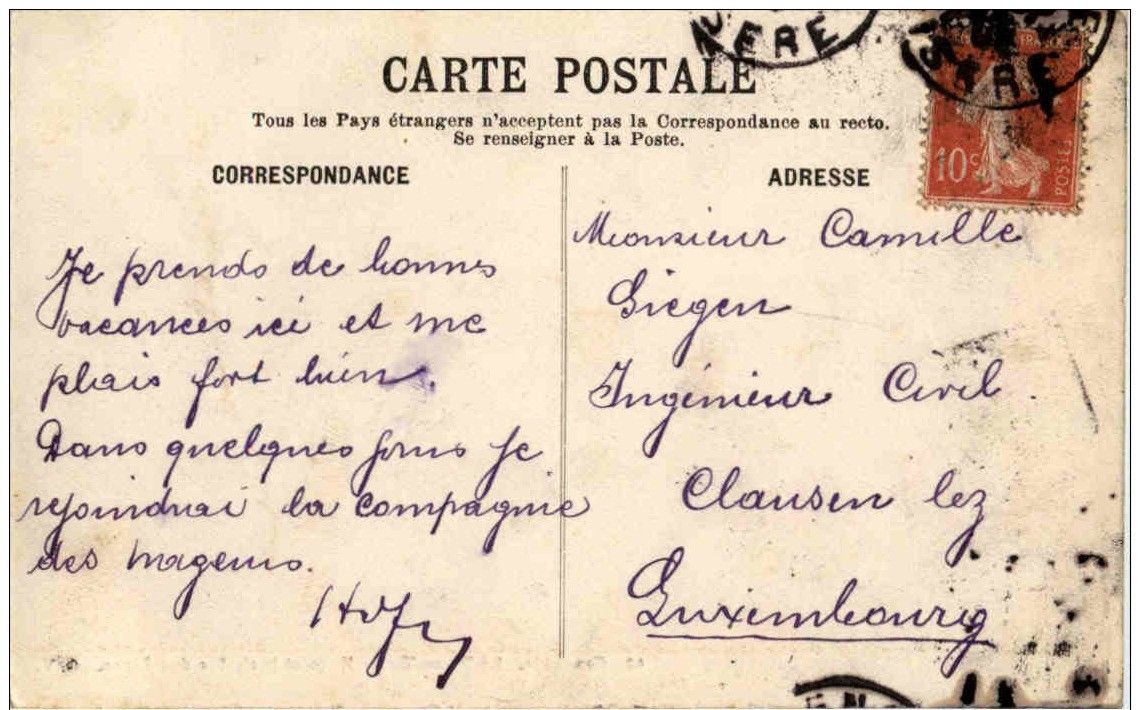 CARTE POSTALE
Tous les Pays étrangers n'acceptent pas la Correspondance au recto.
Se renseigner à la Poste.
CORRESPONDANCE
Je prends de bonnes
vacances ici et me
plais fort bien.
Dans quelques jours je
rejoindrai la compagnie
des
ADRESSE
Monsieur Camille
Giegen
Ingénieur Civil
Clausen lez
Luxembourg
10c
POSTES